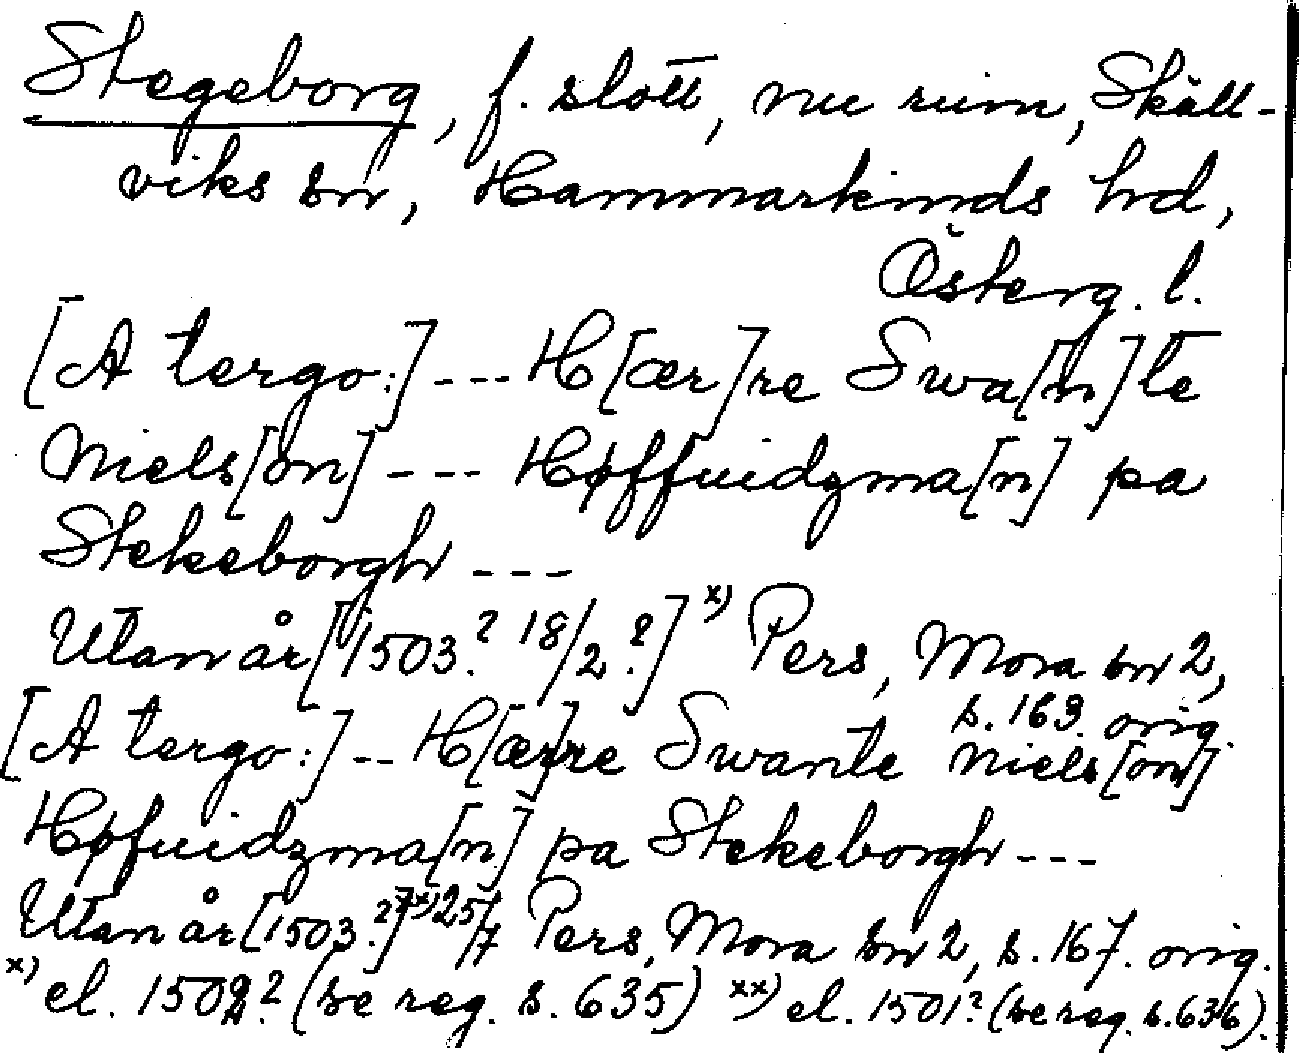 Stegeborg, f. slott, nu ruin, Skäll-
viks sn, Hammarkinds hd,
Österg. l.
[A tergo:] --- H[ær]re Swa[n]te
Niels[øn] --- Høffuidzma[n] pa
Stekeborgh ---
Utan år [1503.? 18/2.?] x) Pers, Mora sn 2,
s. 163. orig.
[A tergo:] -- H[ær]re Swante Niels[øn]
Høfuidzma[n] pa Stekeborgh ---
Utan år [1503.?] xx) 25/7 Pers, Mora sn 2, s. 167. orig.
x) el. 1502? (se reg. s. 635) xx) el. 1501? (se reg. s. 636).